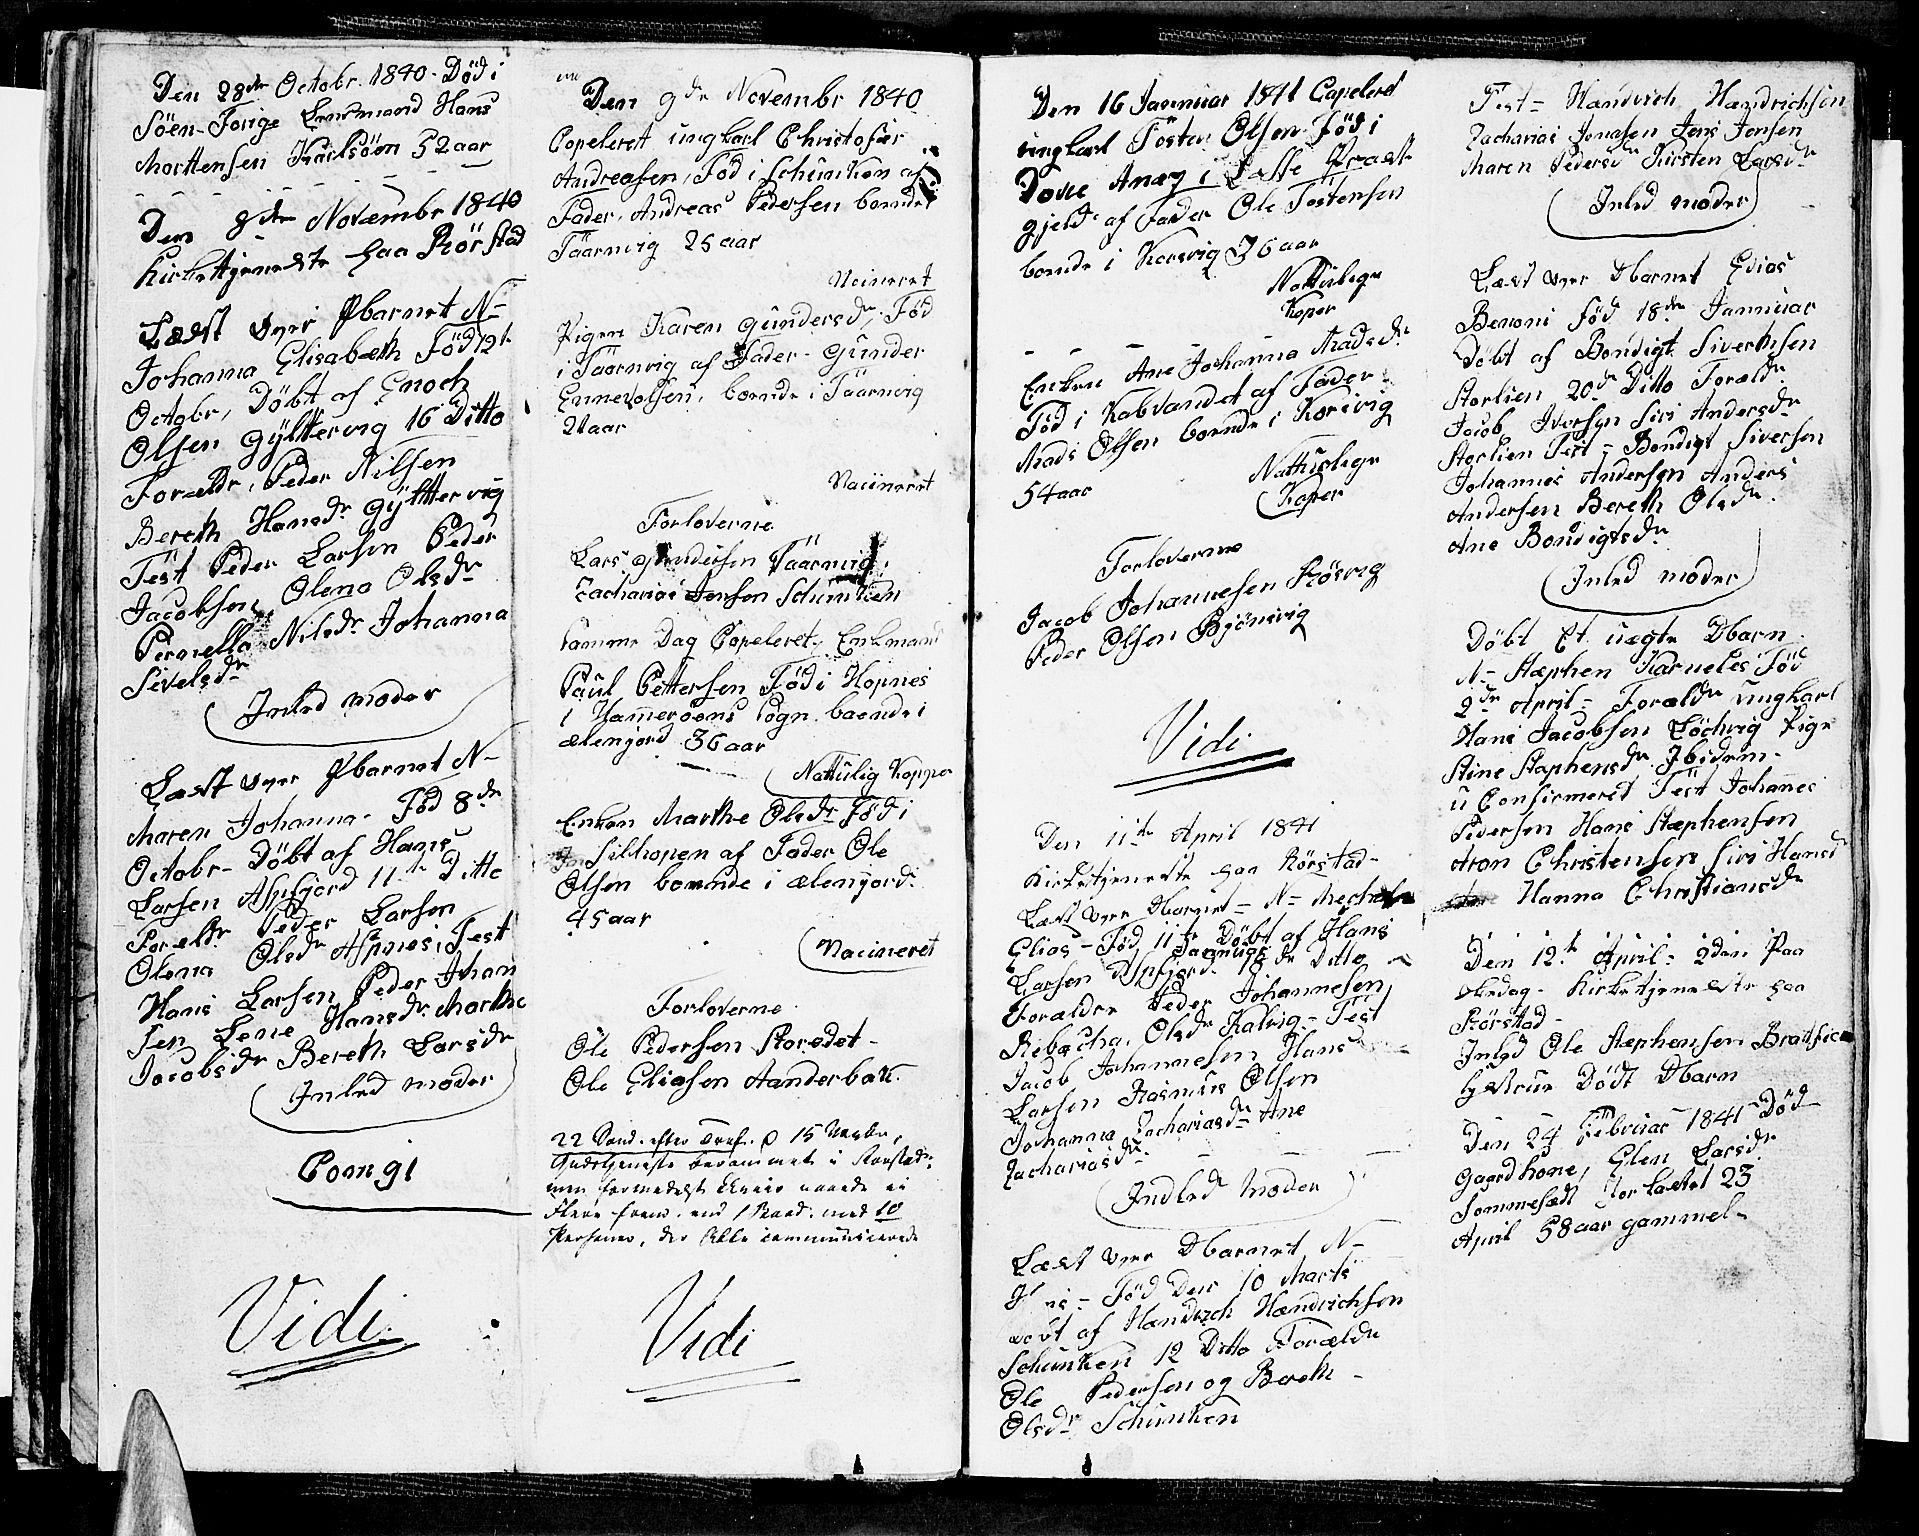 Den 28de Octobr. 1840. Död i
Söen-Forige Lensmand Hans
Morttensen Karlsöen 52 aar
Den 8de Novembr 1840
Kirketjeneste paa Rörstad
Læst over Pbarnet N-
Johanna Elisabeth Föd 12te
Octobr, Döbt af Enoch
Olsen Gÿltervig 16 Ditto
Forældr, Peder Nilsen
Bereth Hansdr Gÿlttervig
Test Peder Larsen Peder
Jacobsen, Olena Olsdr
Pernella Nilsdr Johanna
Sivelsdr
Inled moder
Læst over Pbarnet N-
Maren Johanna. Föd 8de
Octobr- Döbt af Hans
Larsen Aspfjord 11te Ditto
Foreldr Peder Larsen
Olena Olsdr Aspnes, Test
Hans Larsen Peder Johan
sen Lene Hansdr Marthe
Jacobsdr Bereth Larsdr
Inled moder
Vidi
Den 9de Novembr 1840
Copeleret ungkarl Christofær
Andreasen, Föd i Schünken af
Fader, Andreas Pedersen boende i
Täarnvig 25 aar
Vacineret
Pigen Karen Gundersdr, Föd
i Täarnvig af Fader- Günder
Ennevolsen, boende i Täarnvig
22 aar
Vaciineret
Forloverne
Lars Andersen Täarnvig,
Zacharias Jensen Schünken
Samme Dag Copeleret, Enkmand
Paul Pettersen Föd i Hopnes
i Hammeröens Sogn boende i
ælenjord 36 aar
Nattülig Kopper
Enken Marthe Olsdr Föd i
Silhopen af Fader Ole
Olsen boende i ælenjord.
45 aar
Vacineret
Forloverne
Ole Pedersen Storedet-
Ole Eliasen Aanderbak.
22 Sönd. efter Tref. d 15 Novbr,
Gudstjeneste berammet i Rørstad,
men formedelst Uveir navde ei
Flere frem. end 1 Baad. med 10
Personer, der Alle communicerede
Vidi
Den 16 Januar 1841 Copeleret
ungkarl Tösten Olsen. Föd i
Dovre Anæg i Lesse Præst-
gjeld. af Fader Ole Töstensen
boende i Korsvig 36 aar
Nattülige
Koper
Enken Ane Johanna Madsdr
Föd i Kabvandet af Fader
Mads Olsen boende i Korsvig
54 aar
Nattürlige
Koper
Forloverne
Jacob Johannesen Rösvig
Peder Olsen Bjönsvig
Vidi
Den 11te April 1841
Kirketjeneste paa Rörstad-
Læst over Dbarnet- N-
Elias- Föd 11te Januar Döbt af Hans
Larsen Aspfjord. Ditto
Forældre Peder Johannesen,
Rebæcha, Olsdr Kalvig- Test
Jacob Johannesen Hans
Larsen Rasmus Olsen
Johanna Zachariasdr Ane
Zachariasdr
Indled Moder
Læst over Dbarnet N-
Föd Den 10 Marts
af Hændrich Hændrichsen
Schünken 12 Ditto Forældr
Ole Pedersen og Bereth -
Olsdr Schünken
Test- Hændrich Hændrichsen
Zacharias Jonasen Jens Jensen
Maren Pedersdr Kirsten Larsdr
Inled moder
Læst over Dbarnet Edias
Benoni föd 18de Januar
Döbt af Bendigt Sivertsen
Storlien 20de Ditto Forældr
Jacob Iversen Siri Andersdr
Storlien Test- Bendigt Siversen
Johannes Andersen Anders
Andersen Bereth Olsdr.
Ane Bendigtsdr
Inled moder
Döbt Et uægte Dbarn.
N- Stephen Karneles Föd
2de April- Forældr ungkarl
Hans Jacobsen Löchvig Pige
Stine Staphensdr Ibidem-
u Confirmeret Test Johannes
Pedersen Hans Stæphensen
Aron Christensen Siri Hansd
Hanna Christiansdr
Den 12te April- 2den Paa
skedag- Kirketjeneste paa
Rörstad-
Inled Ole Stæphensen
Hustrue Dödt Dbarn
Den 24 Februar 1841 Död
Gaardkone, Elen Larsdr.
Sommesædt Jorkastet 23
April 58 aar gammel-